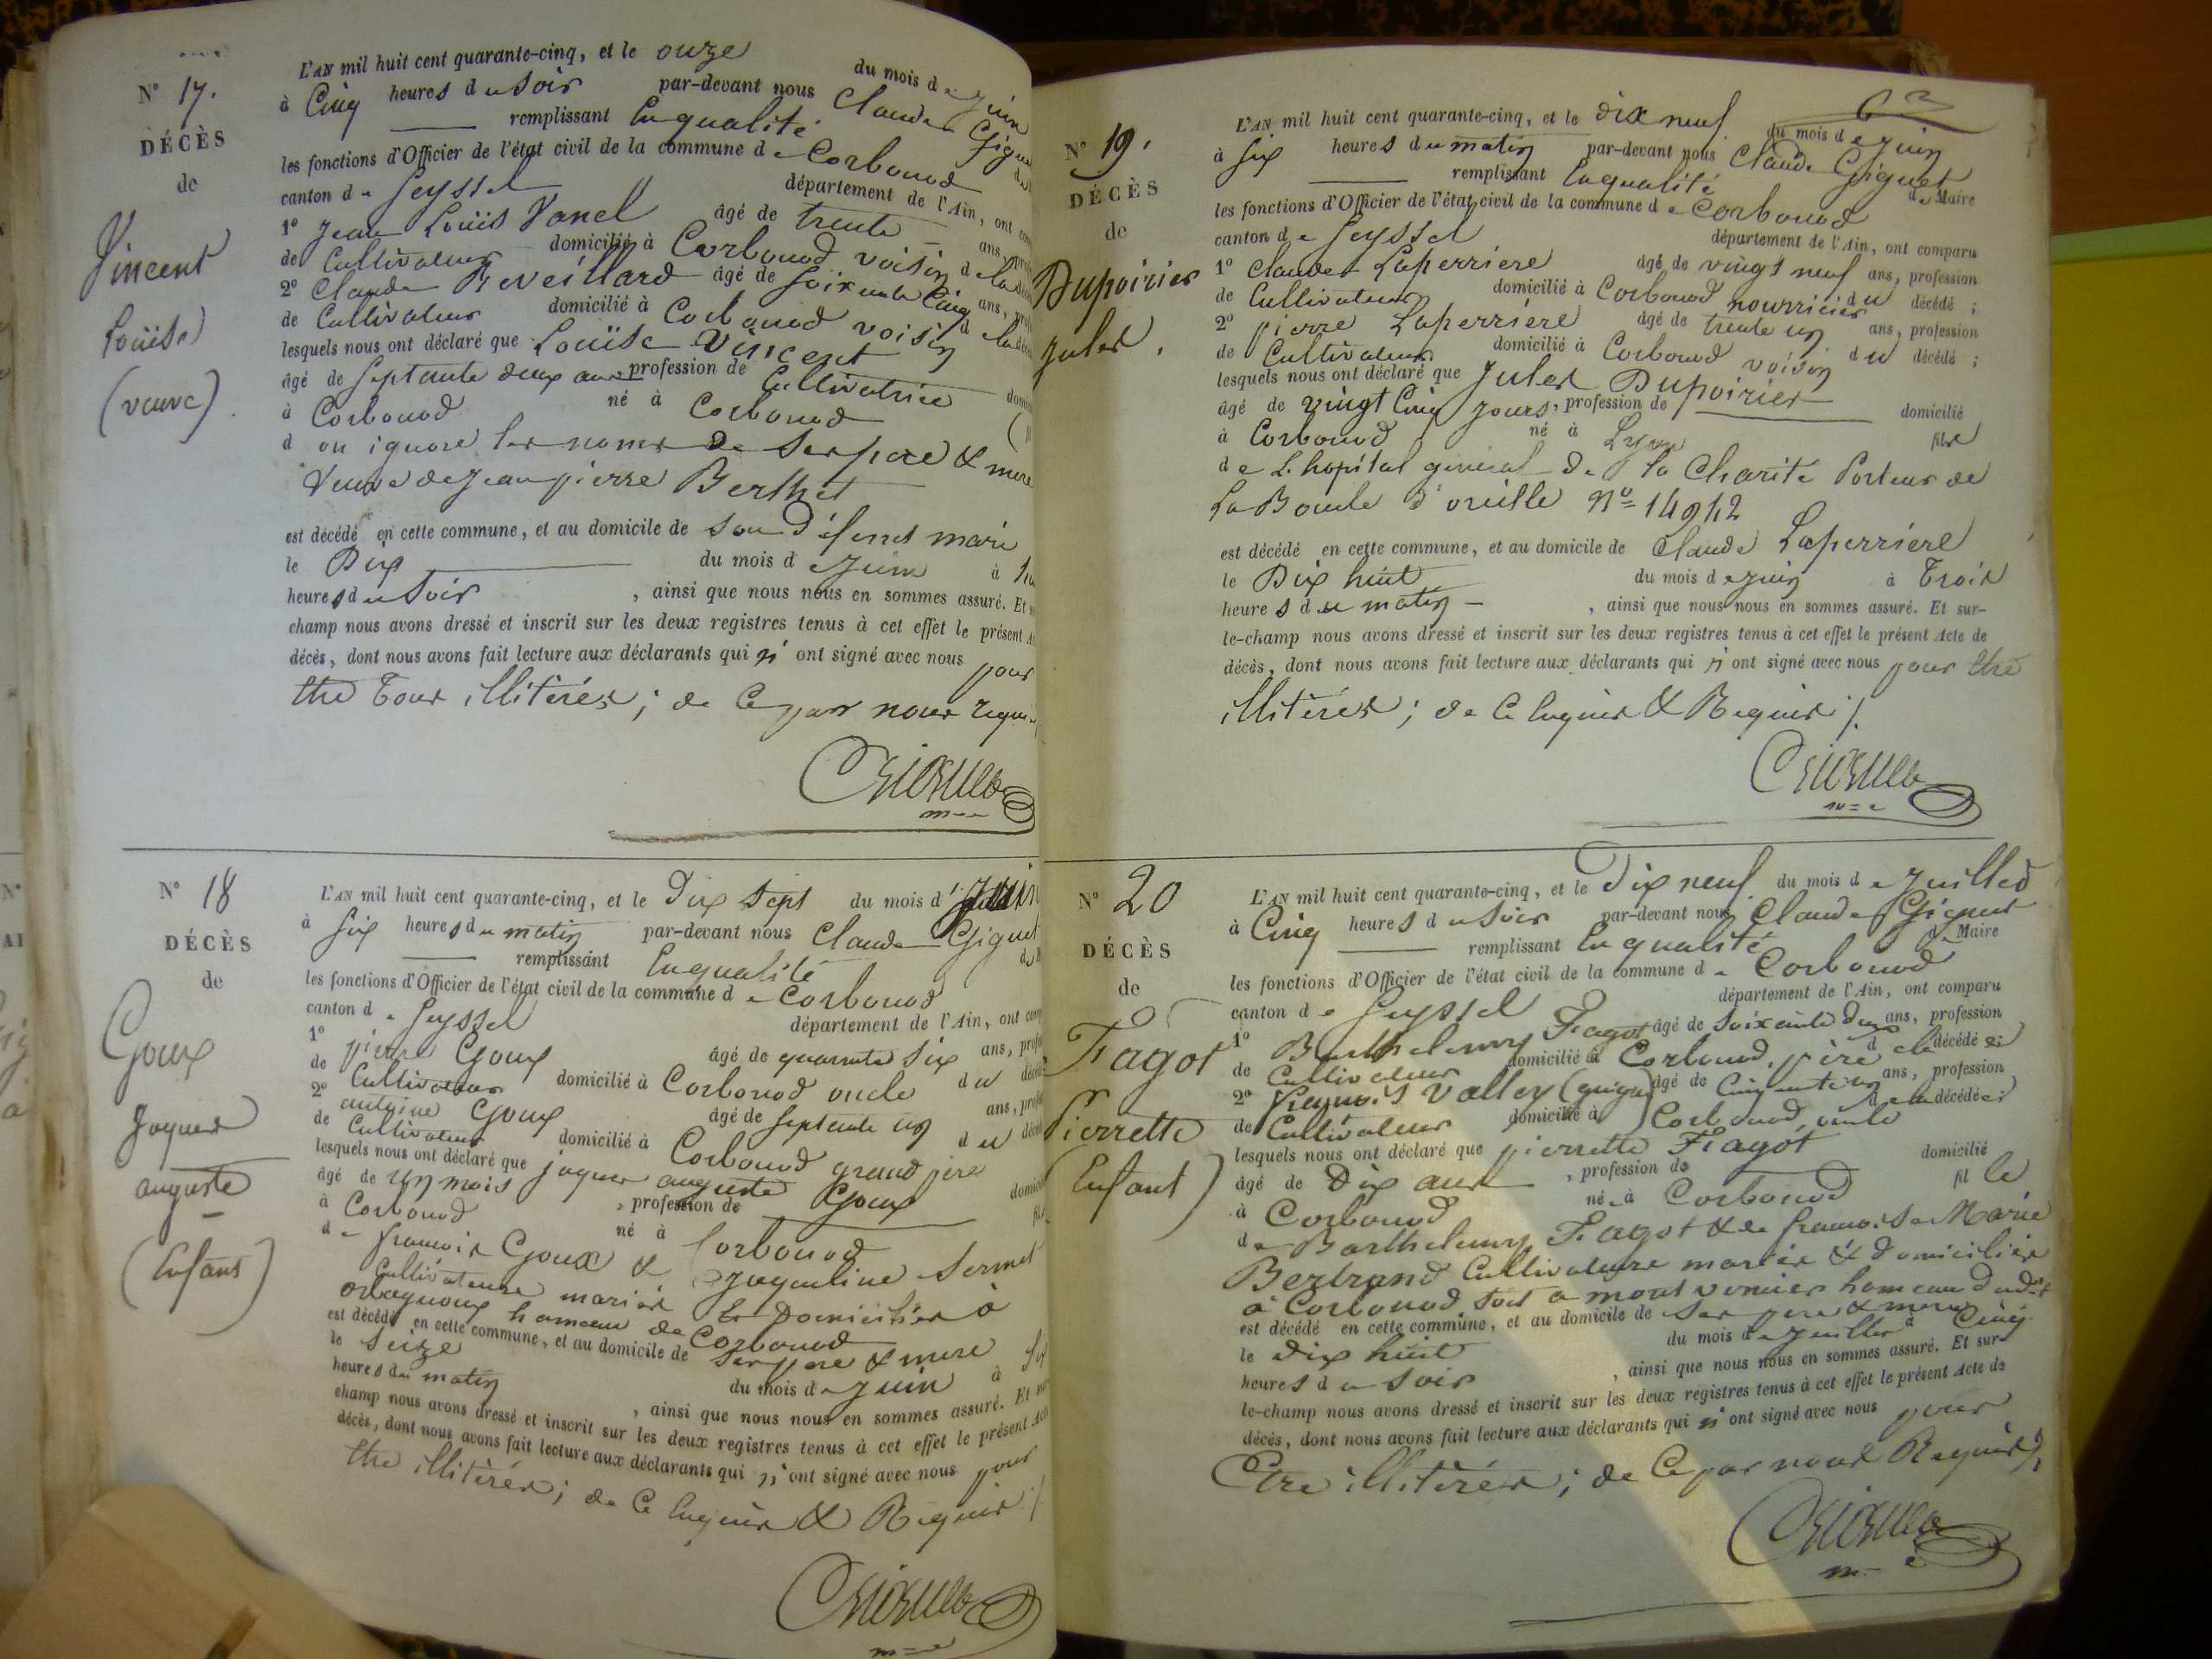 N° 17.
DÉCÈS
de
Vincent
Louise
(veuve)
L'AN mil huit cent quarante-cinq, et le onze du mois de juin
à Cinq heures du soir par-devant nous Claude
remplissant En qualité
les fonctions d'Officier de l'état civil de la commune de Corbonod
canton de Seyssel département de l'Ain, ont
1° Jean Louis Vanel âgé de trente ans,
de Cultivateur domicilié à Corbonod voisin de la
2° Claude Reveillard âgé de soixante Cinq ans,
de Cultivateur domicilié à Corbonod voisin de la
lesquels nous ont déclaré que Louise Vincent
âgé de septante deux ans profession de Cultivatrice
à Corbonod né à Corbonod
d on ignore les noms de ses père & mère
Veuve de jean pierre Berthet
est décédé en cette commune, et au domicile de son défunt mari
le Dix du mois de Juin à
heures du soir, ainsi que nous nous en sommes assuré. Et
champ nous avons dressé et inscrit sur les deux registres tenus à cet effet le présent
décès, dont nous avons fait lecture aux déclarants qui n' ont signé avec nous pour
être tous illitérés; de ce par nous
N° 18
DÉCÈS
de
Goux
Jaques
auguste
(Enfans)
L'AN mil huit cent quarante-cinq, et le Dix sept du mois d juin
à six heures du matin par-devant nous Claude Giguet
remplissant En qualité
les fonctions d'Officier de l'état civil de la commune de Corbonod
canton de Seyssel département de l'Ain, ont
1° pierre Goux âgé de quarante six ans,
de Cultivateur domicilié à Corbonod oncle du
2° antoine Goux âgé de septante un ans,
de Cultivateur domicilié à Corbonod grand père du
lesquels nous ont déclaré que jaques auguste Goux
âgé de un mois, profession de
à Corbonod né à Corbonod
de francois Goux & jaqueline Sermet
Cultivateurs mariés & Domiciliés à
Orbagnoux hameau de Corbonod
est décédé en cette commune, et au domicile de ses père & mère
le seize du mois de juin à
heures du matin, ainsi que nous nous en sommes assuré. Et
champ nous avons dressé et inscrit sur les deux registres tenus à cet effet le présent
décès, dont nous avons fait lecture aux déclarants qui n' ont signé avec nous pour
être illitérés; de ce Enquis & Requis /.
N° 19.
DÉCÈS
de
Dupoirier
jules.
L'AN mil huit cent quarante-cinq, et le dix neuf du mois de juin
à six heures du matin par-devant nous Claude Giguet
remplissant En qualité de Maire
les fonctions d'Officier de l'état civil de la commune de Corbonod
canton de Seyssel département de l'Ain, ont comparu
1° Claude Laperriere âgé de vingt neuf ans, profession
de Cultivateur domicilié à Corbonod nourricier du décédé;
2° pierre Laperriere âgé de trente un ans, profession
de Cultivateur domicilié à Corbonod voisin du décédé;
lesquels nous ont déclaré que Jules Dupoirier
âgé de vingt Cinq jours, profession de domicilié
à Corbonod né à Lyon fils
de L'hopital general de la Charité Porteur de
La Boucle d'oreille N° 14942
est décédé en cette commune, et au domicile de Claude Laperriere
le Dix huit du mois de juin à Trois
heures du matin, ainsi que nous nous en sommes assuré. Et sur-
le-champ nous avons dressé et inscrit sur les deux registres tenus à cet effet le présent Acte de
décès, dont nous avons fait lecture aux déclarants qui n' ont signé avec nous pour être
illitérés; de ce Enquis & Requis /.
N° 20
DÉCÈS
de
Fagot
Pierrette
(Enfant)
L'AN mil huit cent quarante-cinq, et le Dix neuf du mois de juillet
à Cinq heures du soir par-devant nous Claude Giguet
remplissant En qualité de Maire
les fonctions d'Officier de l'état civil de la commune de Corbonod
canton de Seyssel département de l'Ain, ont comparu
1° Barthelemy Fagot âgé de soixante deux ans, profession
de Cultivateur domicilié à Corbonod père de la décédée;
2° françois Vallet âgé de Cinquante un ans, profession
de Cultivateur domicilié à Corbonod, oncle de la décédée
lesquels nous ont déclaré que pierrette Fagot
âgé de Dix ans, profession de domicilié
à Corbonod née à Corbonod fille
de Barthelemy Fagot & de françoise Marie
Bertrand Cultivateurs mariés & domiciliés
à Corbonod, soit a mont vernier hameau dudit
est décédé en cette commune, et au domicile de ses père & mère
le dix huit du mois de juillet à Cinq
heures du soir, ainsi que nous nous en sommes assuré. Et sur
le-champ nous avons dressé et inscrit sur les deux registres tenus à cet effet le présent Acte de
décès, dont nous avons fait lecture aux déclarants qui n' ont signé avec nous pour
Etre illitérés; de ce par nous Requis /.